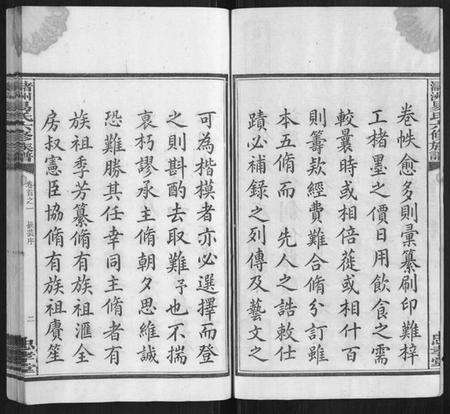 卷帙愈多則彙纂刷印難梓
工楮墨之價日用飲食之需
較曩時或相倍蓰或相什百
則籌欵經費難合脩分訂雖
本五脩而 先人之誥敕仕
蹟必補録之列傳及藝文之
可為楷模者亦必選擇而登
之則斟酌去取難予也不揣
衰朽謬承主脩朝夕思維誠
恐難勝其任幸同主脩者有
族祖季芳纂脩有族祖滙全
房叔憲臣協脩有族祖賡笙
卷首之一
二